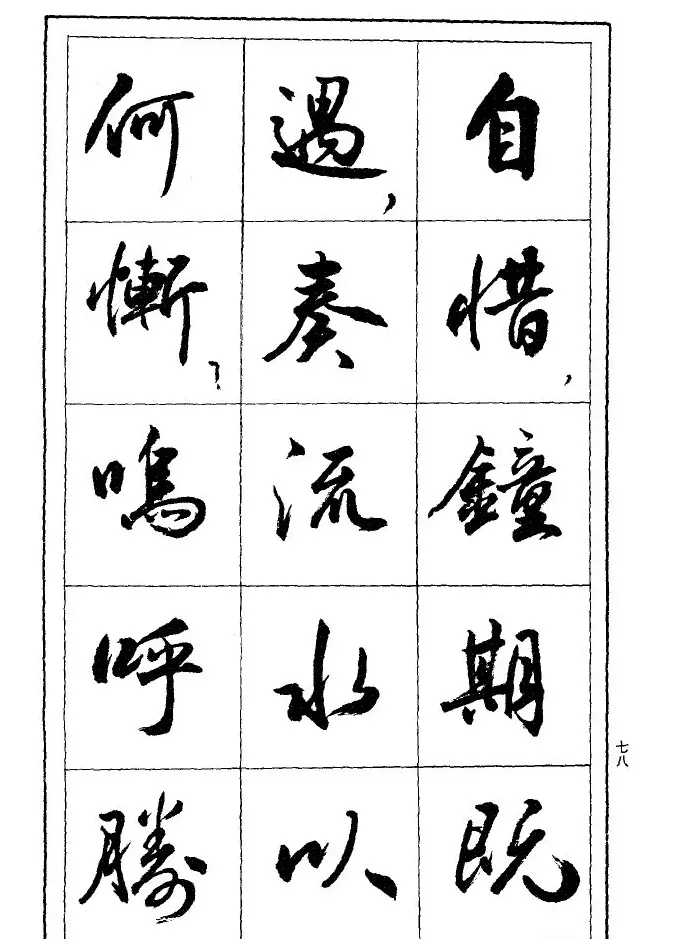 自惜，鐘期既
遇，奏流水以
何慚？嗚呼勝
七八